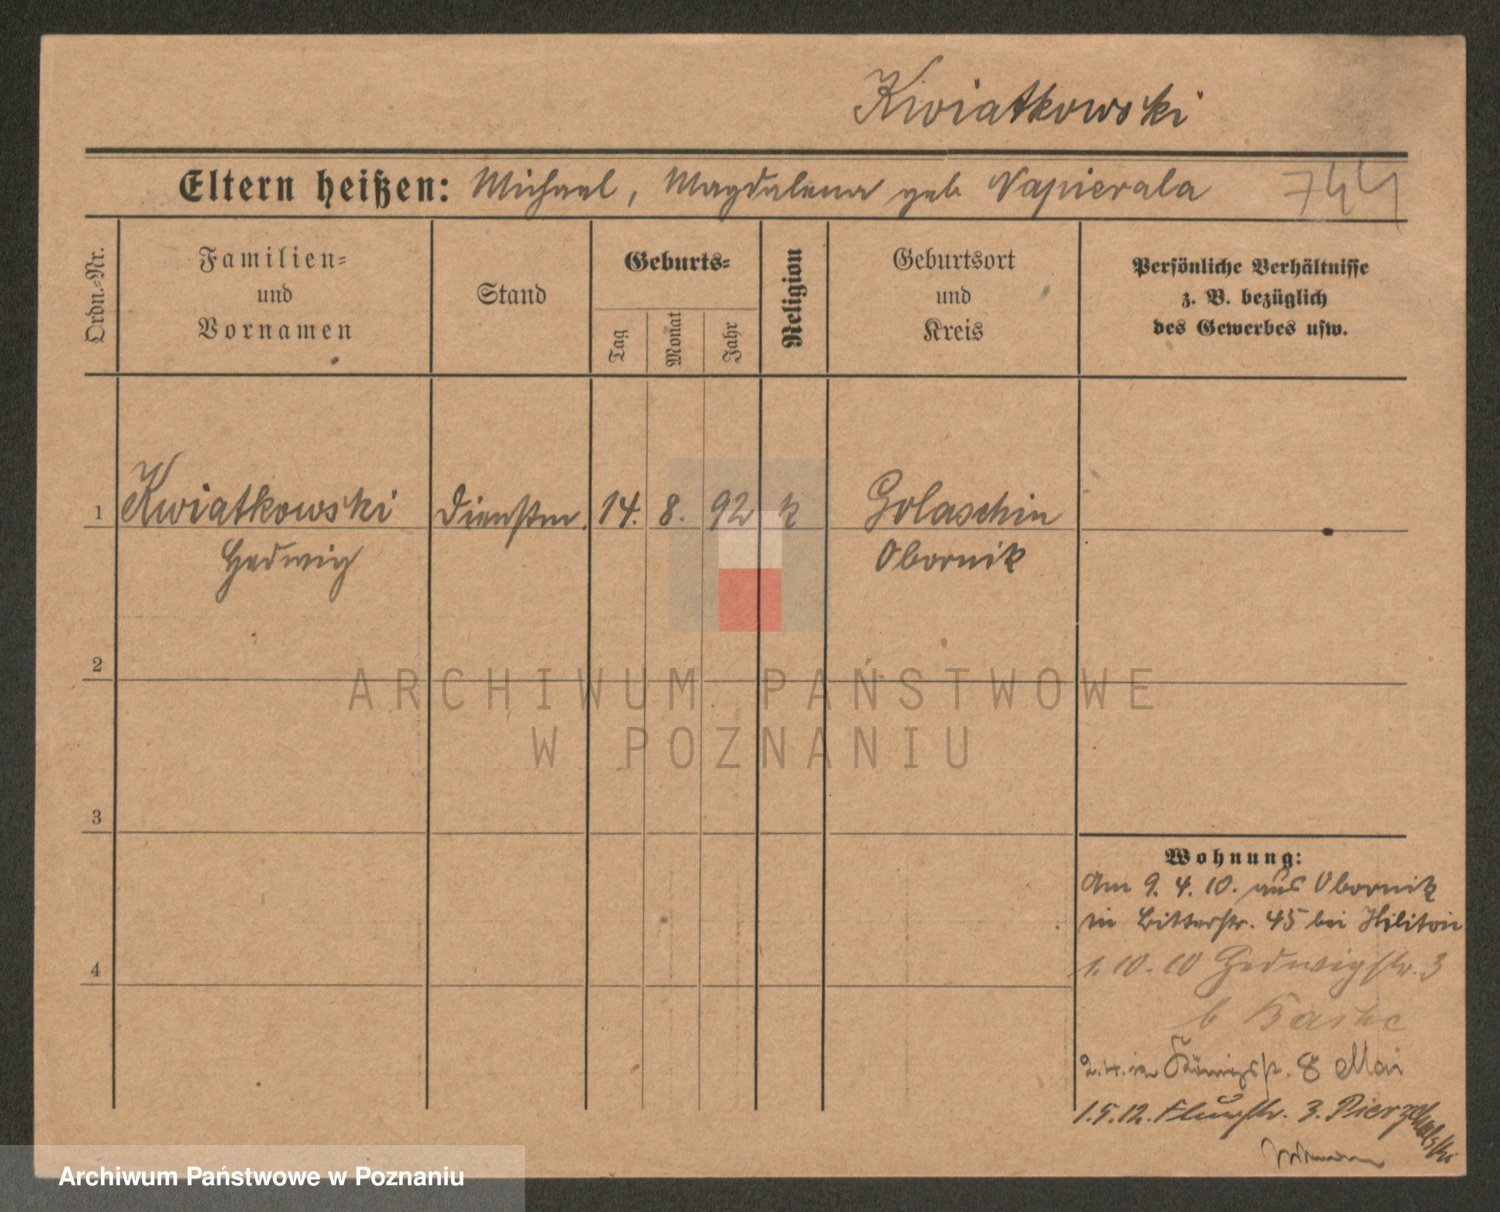 Kwiatkowski
Eltern heißen: Michael, Magdalena geb Napierala 744
Ordn.-Nr.
Familien-
und
Vornamen
Stand
Geburts-
Tag
Monat
Jahr
Religion
Geburtsort
und
Kreis
Persönliche Verhältnisse
z. B. bezüglich
des Gewerbes usw.
1 Kwiatkowski Dienstm. 14. 8. 92 k Golaschin
Hedwig Obornik
2
ARCHIWUM PAŃSTWOWE
W POZNANIU
3
4
Wohnung:
Am 9. 4. 10. aus Obornik
in Ritterstr. 45 bei
1. 10. 10 Hedwigstr. 3
b
Königsp. 8 Mai
1.5.12. Flurstr. 3. Pierzchalski
Archiwum Państwowe w Poznaniu